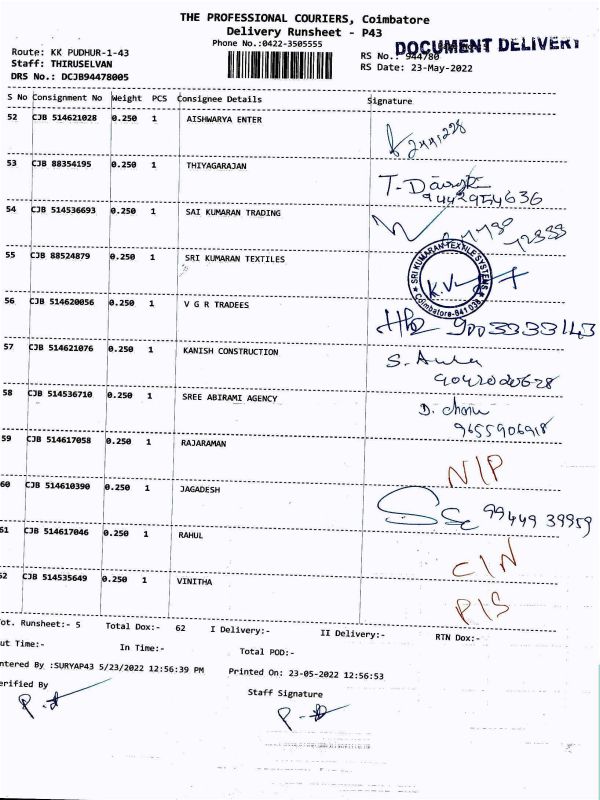 THE PROFESSIONAL COURIERS, Coimbatore
Delivery Runsheet - P43
Phone No.:0422-3505555
DOCUMENT DELIVERY
Route: KK PUDHUR-1-43
RS No.: 944780
Staff: THIRUSELVAN
RS Date: 23-May-2022
DRS No.: DCJB94478005
S No Consignment No Weight PCS Consignee Details Signature
52 CJB 514621028 0.250 1 AISHWARYA ENTER
53 CJB 88354195 0.250 1 THIYAGARAJAN
54 CJB 514536693 0.250 1 SAI KUMARAN TRADING
55 CJB 88524879 0.250 1 SRI KUMARAN TEXTILES
SRI KUMARAN TEXTILE SYSTEMS
Coimbatore-641 038
56 CJB 514620056 0.250 1 V G R TRADEES 9003333143
57 CJB 514621076 0.250 1 KANISH CONSTRUCTION
58 CJB 514536710 0.250 1 SREE ABIRAMI AGENCY
9655906918
59 CJB 514617058 0.250 1 RAJARAMAN N/P
60 CJB 514610390 0.250 1 JAGADESH 99449 39959
61 CJB 514617046 0.250 1 RAHUL C/N
62 CJB 514535649 0.250 1 VINITHA P/S
Tot. Runsheet:- 5 Total Dox:- 62 I Delivery:- II Delivery:- RTN Dox:-
Out Time:- In Time:- Total POD:-
Entered By :SURYAP43 5/23/2022 12:56:39 PM Printed On: 23-05-2022 12:56:53
Verified By Staff Signature